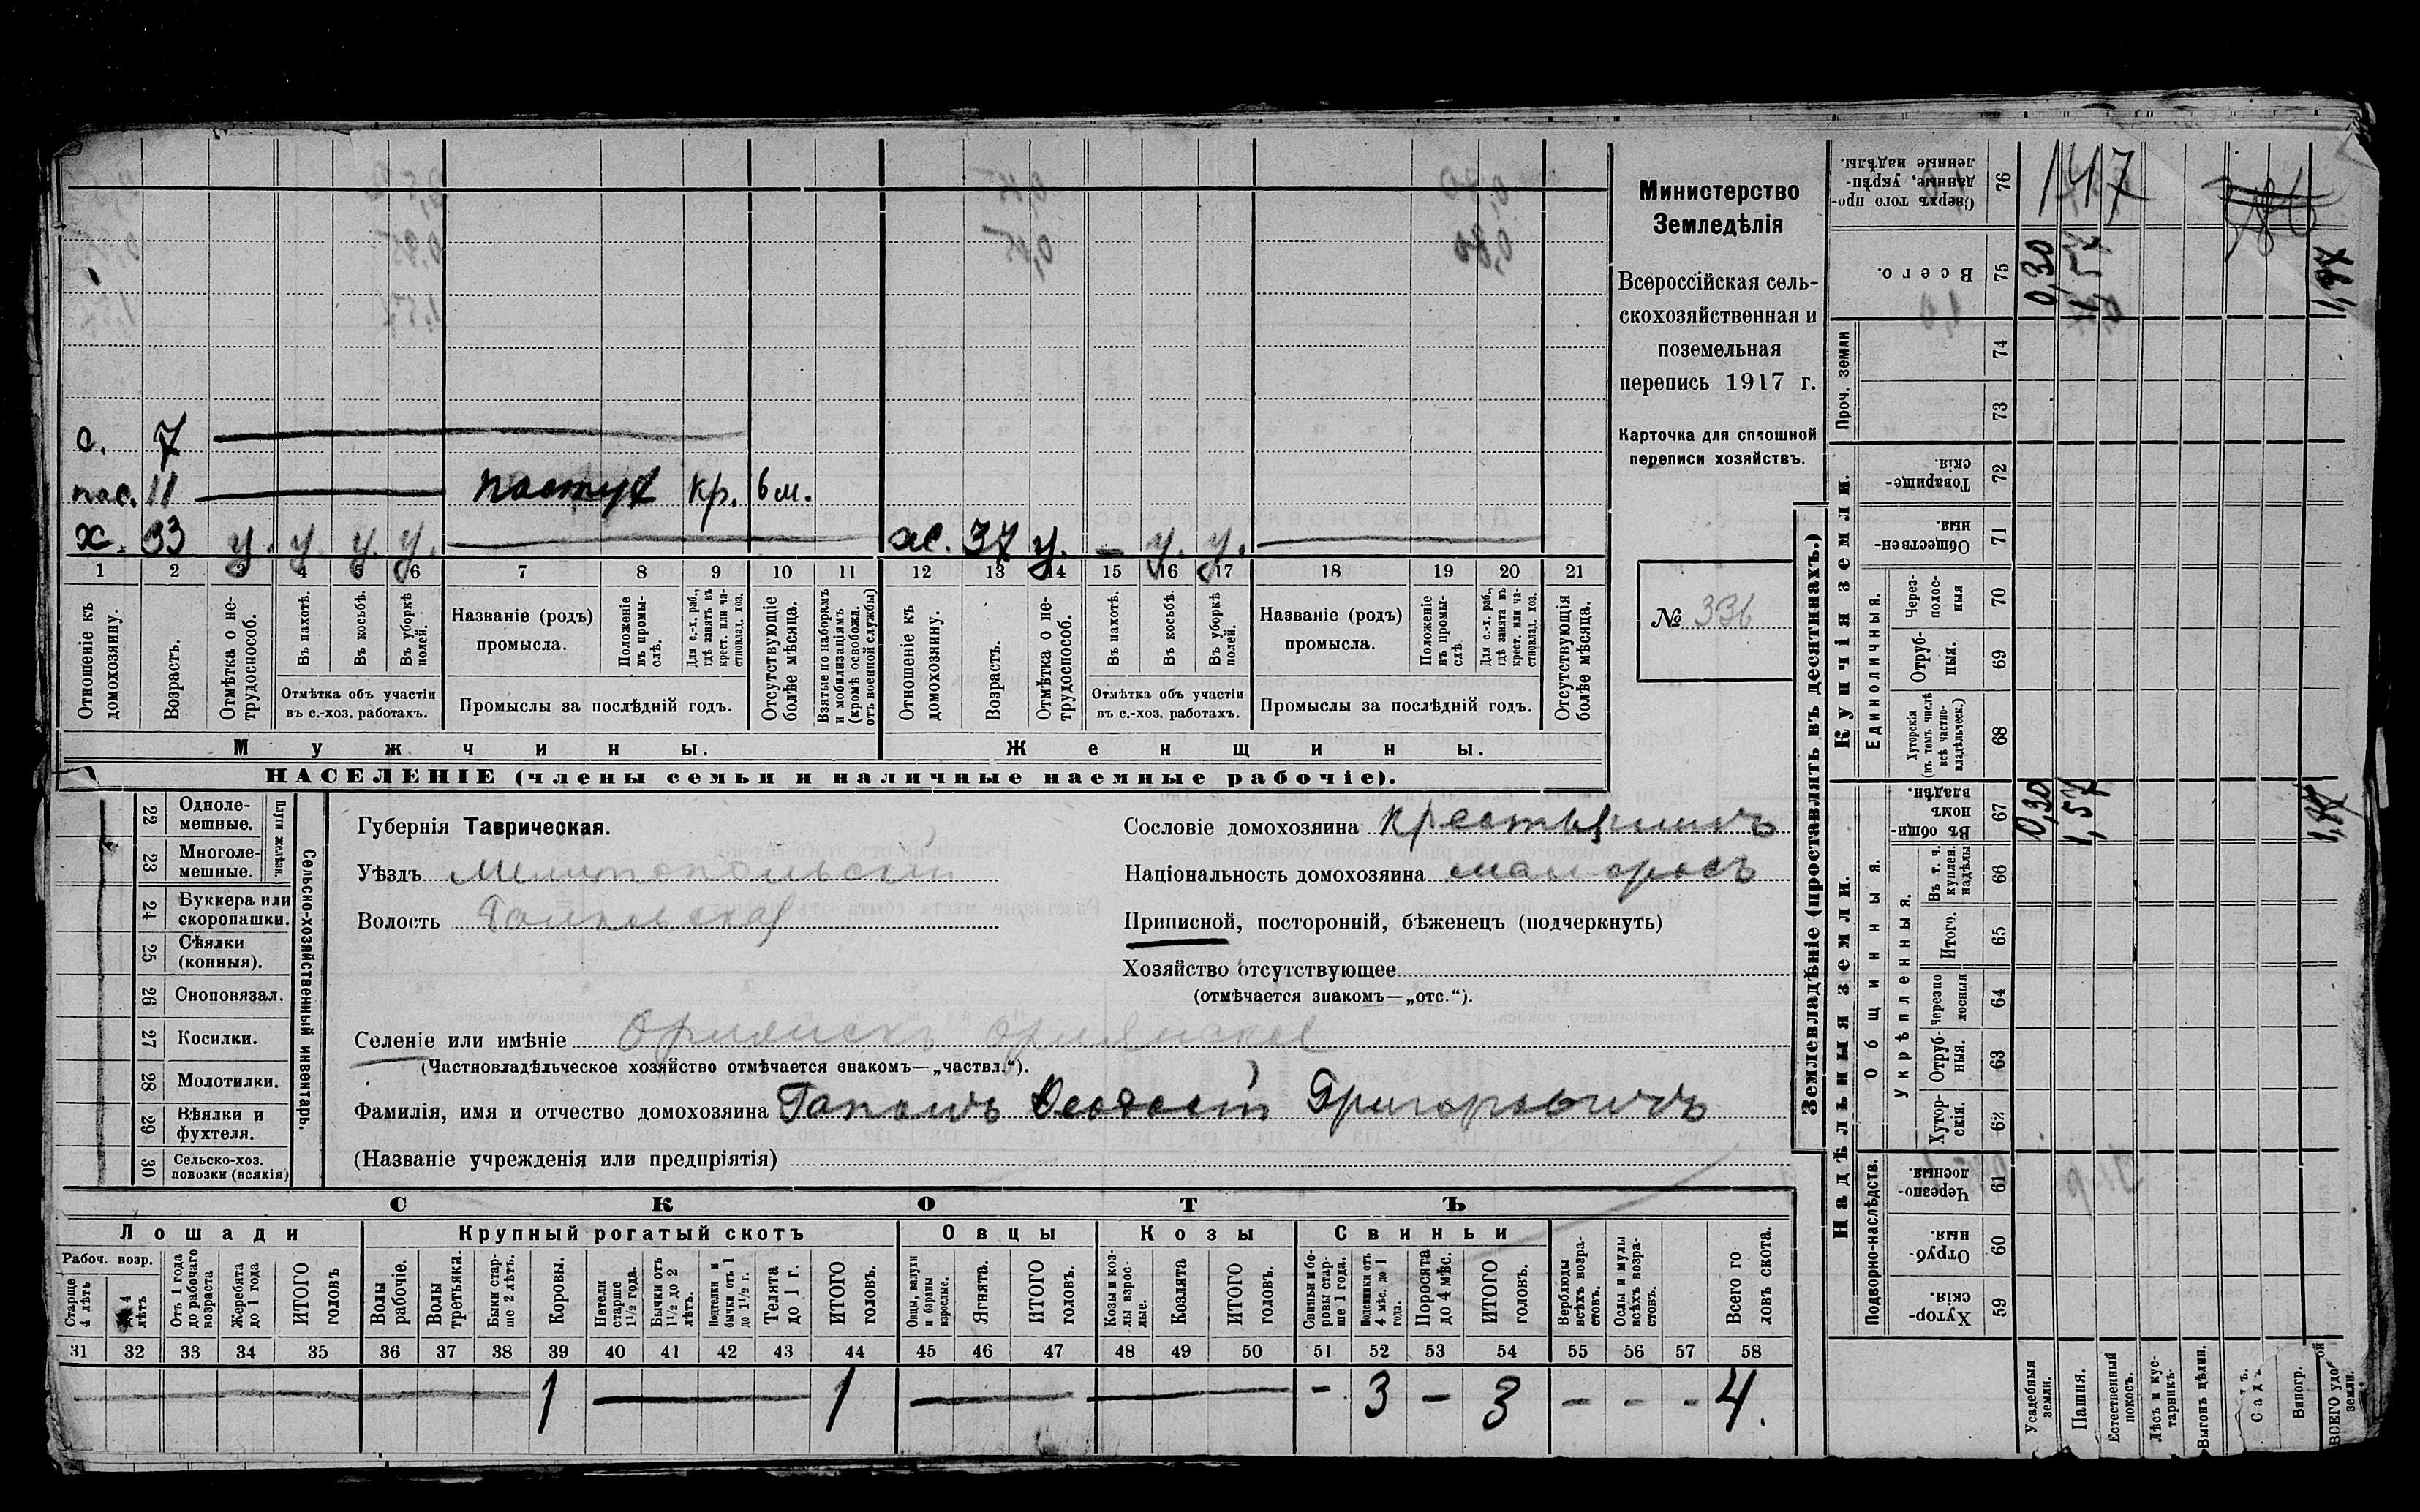 Министерство
Земледѣлія
Всероссійская сель-
скохозяйственная и
поземельная
перепись 1917 г.
Карточка для сплошной
переписи хозяйствъ.
№ 336
с. 7
пас. 11 пастух кр. 6 м.
х. 33 у. у. у. у. ж. 37 у. — у. у.
1 2 3 4 5 6 7 8 9 10 11 12 13 14 15 16 17 18 19 20 21
Отношеніе къ домохозяину.
Возрастъ.
Отмѣтка о не-трудоспособ.
Въ пахотѣ.
Въ косьбѣ.
Въ уборкѣ полей.
Отмѣтка объ участіи
въ с.-хоз. работахъ.
Названіе (родъ)
промысла.
Положеніе въ промы-слѣ.
Для с.-х. раб., гдѣ занятъ въ крест. или ча-стновлад. хоз.
Промыслы за послѣдній годъ.
Отсутствующіе болѣе мѣсяца.
Взятые по наборамъ и мобилизаціямъ (кромѣ освобожд. отъ военной службы)
Отношеніе къ домохозяину.
Возрастъ.
Отмѣтка о не-трудоспособ.
Въ пахотѣ.
Въ косьбѣ.
Въ уборкѣ полей.
Отмѣтка объ участіи
въ с.-хоз. работахъ.
Названіе (родъ)
промысла.
Положеніе въ промы-слѣ
Для с.-х. раб., гдѣ занята въ крест. или ча-стновлад. хоз.
Промыслы за послѣдній годъ.
Отсутствующія болѣе мѣсяца.
Мужчины.
Женщины.
НАСЕЛЕНІЕ (члены семьи и наличные наемные рабочіе).
Сельско-хозяйственный инвентарь.
Плуги желѣзн.
22 Одноле-мешные.
23 Многоле-мешные.
24 Буккера или скоропашки.
25 Сѣялки (конныя).
26 Сноповязал.
27 Косилки.
28 Молотилки.
29 Вѣялки и фухтеля.
30 Сельско-хоз. повозки (всякія)
Губернія Таврическая.
Уѣздъ Мелитопольскій
Волость
Сословіе домохозяина крестьянинъ
Національность домохозяина малороссъ
Приписной, посторонній, бѣженецъ (подчеркнуть)
Хозяйство отсутствующее
(отмѣчается знакомъ—„отс.“).
Селеніе или имѣніе
(Частновладѣльческое хозяйство отмѣчается знакомъ—„частвл.“).
Фамилія, имя и отчество домохозяина Гапонъ Феодосій Григоровичъ
(Названіе учрежденія или предпріятія)
СКОТЪ
Лошади
Крупный рогатый скотъ
Овцы
Козы
Свиньи
Рабоч. возр.
Старше 4 лѣтъ
4 лѣтъ
Отъ 1 года до рабочаго возраста
Жеребята до 1 года
ИТОГО головъ
Волы рабочіе.
Волы третьяки.
Быки стар-ше 2 лѣтъ.
Коровы.
Нетели старше 1½ года.
Бычки отъ 1½ до 2 лѣтъ.
Подтелки и бычки отъ 1 до 1½ г.
Телята до 1 г.
ИТОГО головъ.
Овцы, валухи и бараны взрослые.
Ягнята.
ИТОГО головъ.
Козы и коз-лы взрос-лые.
Козлята
ИТОГО головъ.
Свиньи и бо-ровы стар-ше 1 года.
Подсвинки отъ 4 мѣс. до 1 года.
Поросята до 4 мѣс.
ИТОГО головъ.
Верблюды всѣхъ возра-стовъ.
Ослы и мулы всѣхъ возра-стовъ.
Всего го-ловъ скота.
31 32 33 34 35 36 37 38 39 40 41 42 43 44 45 46 47 48 49 50 51 52 53 54 55 56 57 58
1 — 1 — — - 3 - 3 - - - 4.
Землевладѣніе (проставлять въ десятинахъ.)
Купчія земли.
Надѣльныя земли.
Сверхъ того про-данные, укрѣп-ленные надѣлы. 76 147
Всего. 75 0,30 1,57 1,87
Проч. земли
74
73
Товарище-скія. 72
Обществен-ныя. 71
Единоличныя.
Через-полос-ныя 70
Отруб-ныя. 69
Хуторскія (въ томъ числѣ всѣ частно-владѣльческ.) 68
Общинныя.
Въ общи-номъ владѣн. 67 0,30 1,57 1,87
Укрѣпленныя.
Въ т. ч. куплен. надѣлы 66
Итого. 65
Черезпо-лосныя 64
Отруб-ныя. 63
Хутор-скія. 62
Подворно-наслѣдств.
Черезпо-лосныя. 61
Отруб-ныя. 60
Хутор-скія. 59
Усадебныя земли.
Пашня.
Естественный покосъ.
Лѣсъ и кус-тарникъ.
Выгонъ цѣлин.
Виногр.